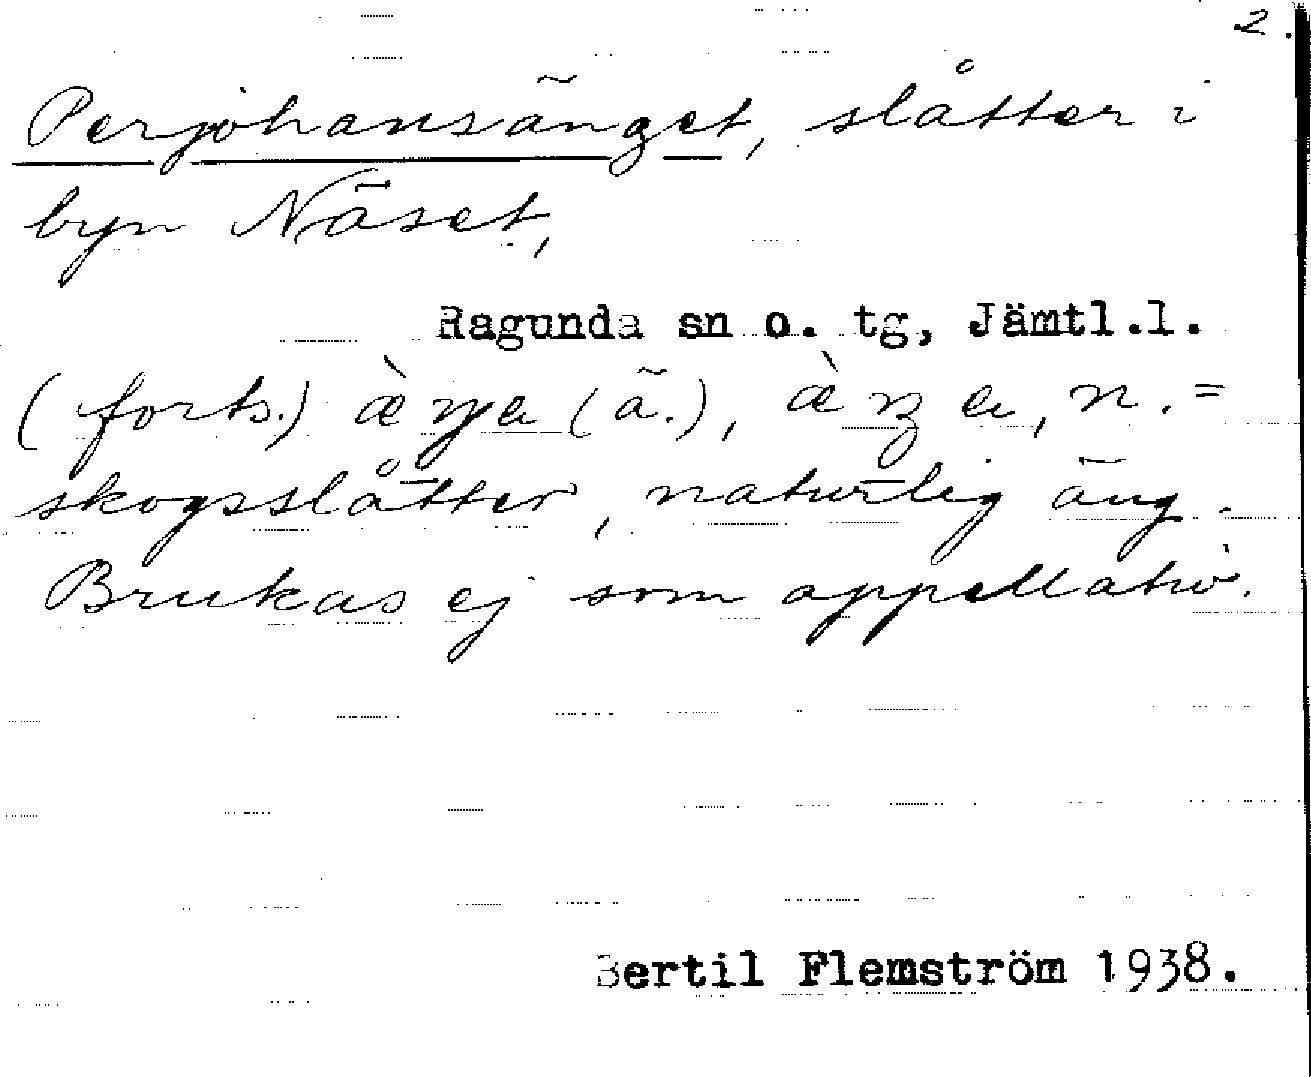 2.
Perjohansänget, slåtter i
byn Näset,
Ragunda sn o. tg, Jämtl.l.
(forts.) (ä.), n. =
skogsslåtter, naturlig äng.
Brukas ej som appellativ.
Bertil Flemström 1938.